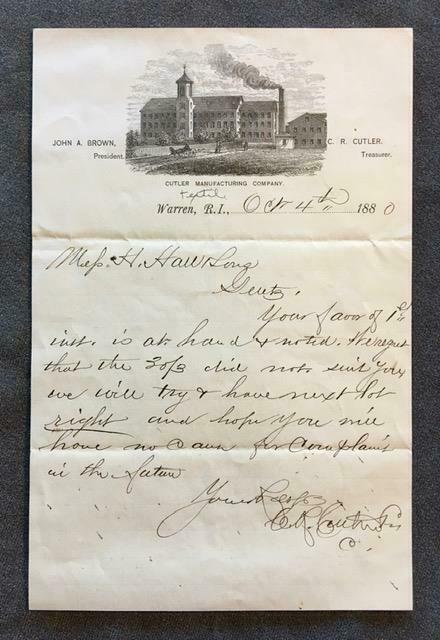 JOHN A. BROWN,
President.
C. R. CUTLER.
Treasurer.
CUTLER MANUFACTURING COMPANY.
Warren, R.I., Oct 4th 1880
Mess. H. Haw & Song
Gents.
Your favor of 1st
inst. is at hand & noted. We regret
that the did not suit you
we will try & have next lot
right and hope you will
have no cause for complaint
in the future
Yours